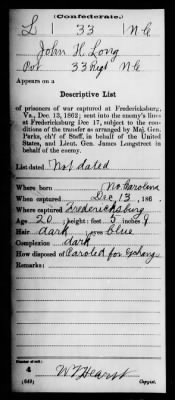 (Confederate.)
L | 33 | N C
John H. Long
Pvt 33 Regt N.C
Appears on a
Descriptive List
of prisoners of war captured at Fredericksburg,
Va., Dec. 13, 1862; sent into the enemy's lines
at Fredericksburg Dec 17, subject to the con-
ditions of the transfer as arranged by Maj. Gen.
Parks, ch'f of Staff, in behalf of the United
States, and Lieut. Gen. James Longstreet in
behalf of the enemy.
List dated Not dated
Where born No. Carolina
When captured Dec 13, 186
Where captured Fredericksburg
Age 20 ; height 5 feet 9
Hair dark ; eyes blue
Complexion dark
How disposed of Paroled for Exchang
Remarks:
Number of roll:
4
(649)
W T Hearst
Copyist.